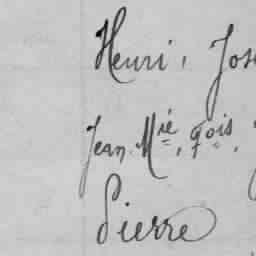 Henri, Jos
Jean Mie, qois,
Pierre